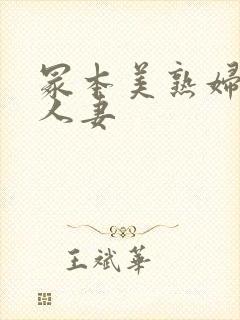 冢本美熟婦
人妻
王斌華